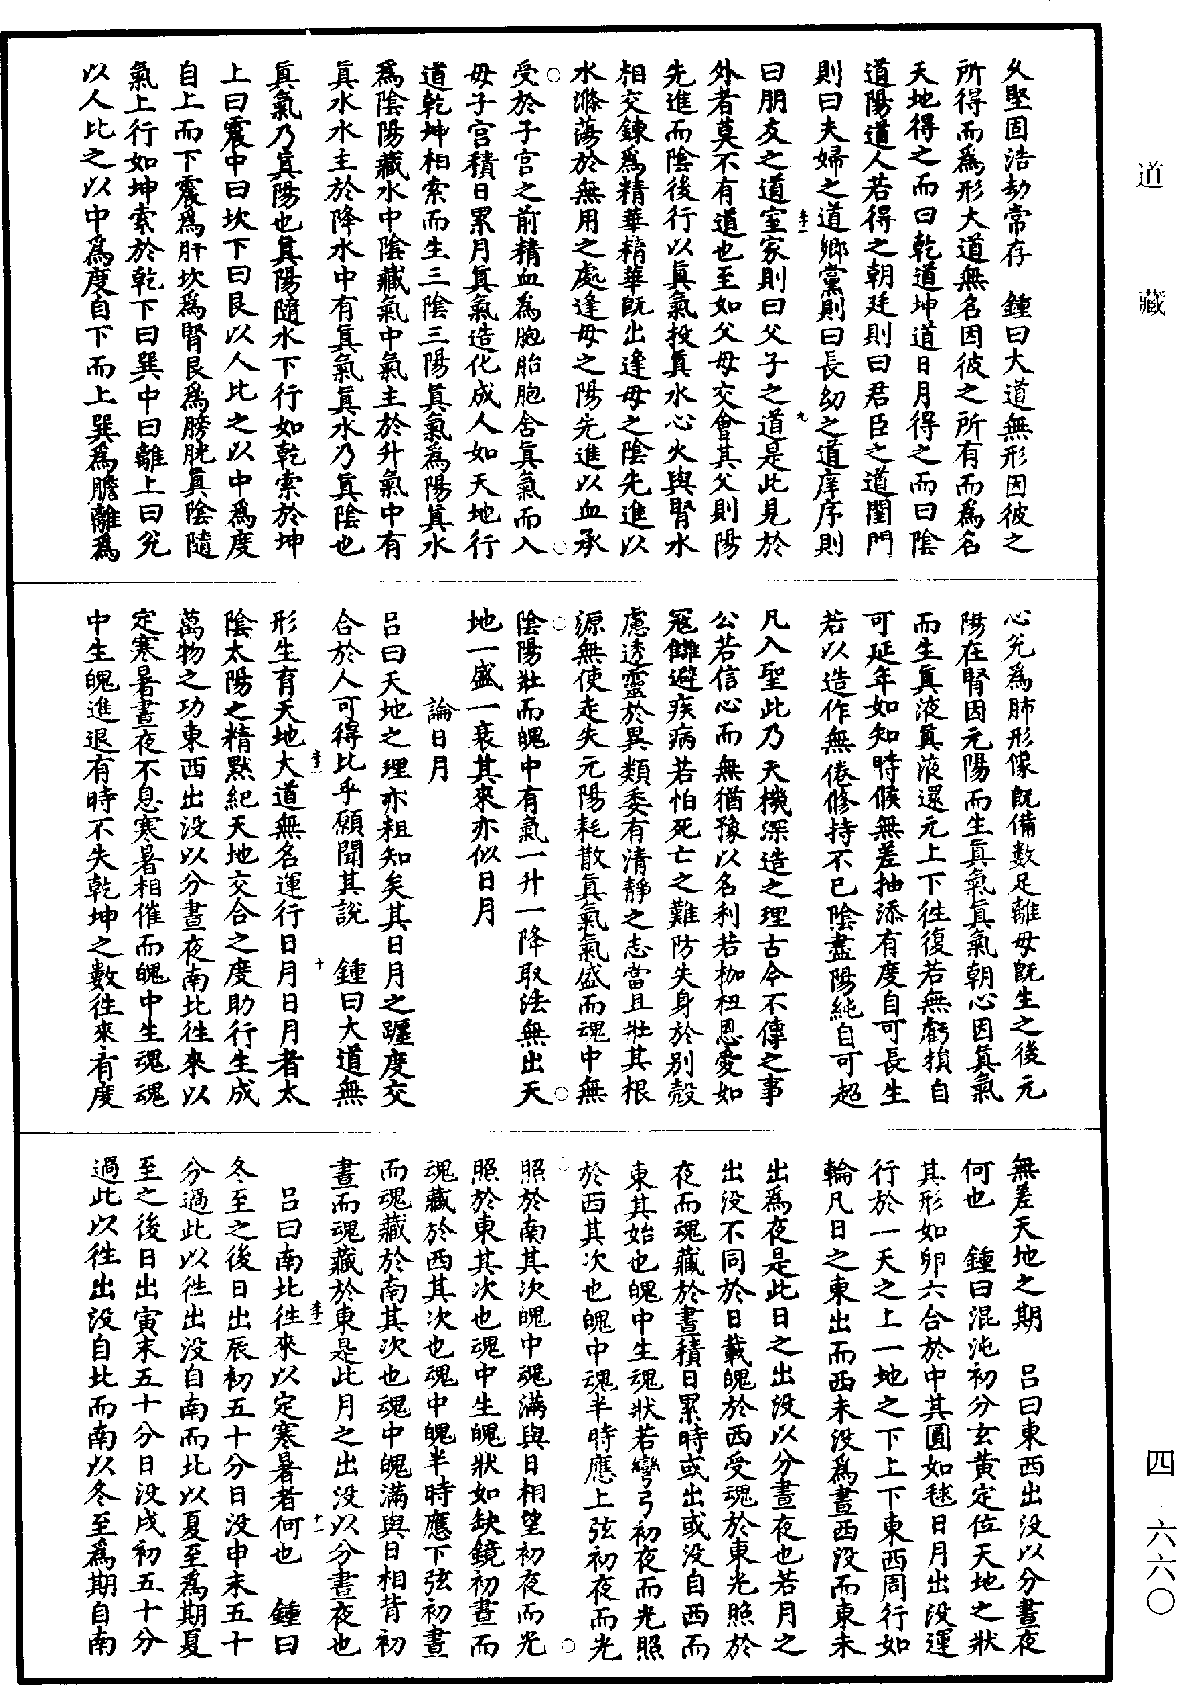 道藏
四 六六〇
久堅固浩劫常存　鍾曰大道無形因彼之
所得而爲形大道無名因彼之所有而爲名
天地得之而曰乾道坤道日月得之而曰陰
道陽道人若得之朝廷則曰君臣之道閨門
則曰夫婦之道鄉黨則曰長幼之道庠序則
曰朋友之道室家則曰父子之道是此見於
外者莫不有道也至如父母交會其父則陽
先進而陰後行以眞氣投眞水心火與腎水
相交鍊爲精華精華既出逢母之陰先進以
水滌蕩於無用之處逢母之陽先進以血承
受於子宫之前精血爲胞胎胞舍眞氣而入
母子宫積日累月眞氣造化成人如天地行
道乾坤相索而生三陰三陽眞氣爲陽眞水
爲陰陽藏水中陰藏氣中氣主於升氣中有
眞水水主於降水中有眞氣眞水乃眞陰也
眞氣乃眞陽也眞陽隨水下行如乾索於坤
上曰震中曰坎下曰艮以人比之以中爲度
自上而下震爲肝坎爲腎艮爲膀胱眞陰隨
氣上行如坤索於乾下曰巽中曰離上曰兊
以人比之以中爲度自下而上巽爲膽離爲
心兊爲肺形像既備數足離母既生之後元
陽在腎因元陽而生眞氣眞氣朝心因眞氣
而生眞液眞液還元上下往復若無虧損自
可延年如知時候無差抽添有度自可長生
若以造作無倦修持不已陰盡陽純自可超
凡入聖此乃天機深造之理古今不傳之事
公若信心而無猶豫以名利若枷杻恩愛如
寃讎避疾病若怕死亡之難防失身於别殻
慮透靈於異類委有清靜之志當且壯其根
源無使走失元陽耗散眞氣氣盛而魂中無
陰陽壯而魄中有氣一升一降取法無出天
地一盛一衰其來亦似日月
論日月
吕曰天地之理亦粗知矣其日月之躔度交
合於人可得比乎願聞其說　鍾曰大道無
形生育天地大道無名運行日月日月者太
陰太陽之精默紀天地交合之度助行生成
萬物之功東西出没以分晝夜南北往來以
定寒暑晝夜不息寒暑相催而魄中生魂魂
中生魄進退有時不失乾坤之數往來有度
無差天地之期　吕曰東西出没以分晝夜
何也　鍾曰混沌初分玄黄定位天地之狀
其形如卵六合於中其圓如毬日月出没運
行於一天之上一地之下上下東西周行如
輪凡日之東出而西未没爲晝西没而東未
出爲夜是此日之出没以分晝夜也若月之
出没不同於日載魄於西受魂於東光照於
夜而魂藏於晝積日累時或出或没自西而
東其始也魄中生魂狀若彎弓初夜而光照
於西其次也魄中魂半時應上弦初夜而光
照於南其次魄中魂滿與日相望初夜而光
照於東其次也魂中生魄狀如缺鏡初晝而
魂藏於西其次也魂中魄半時應下弦初晝
而魂藏於南其次也魂中魄滿與日相背初
晝而魂藏於東是此月之出没以分晝夜也
吕曰南北往來以定寒暑者何也　鍾曰
冬至之後日出辰初五十分日没申末五十
分過此以往出没自南而北以夏至爲期夏
至之後日出寅末五十分日没戌初五十分
過此以往出没自北而南以冬至爲期自南